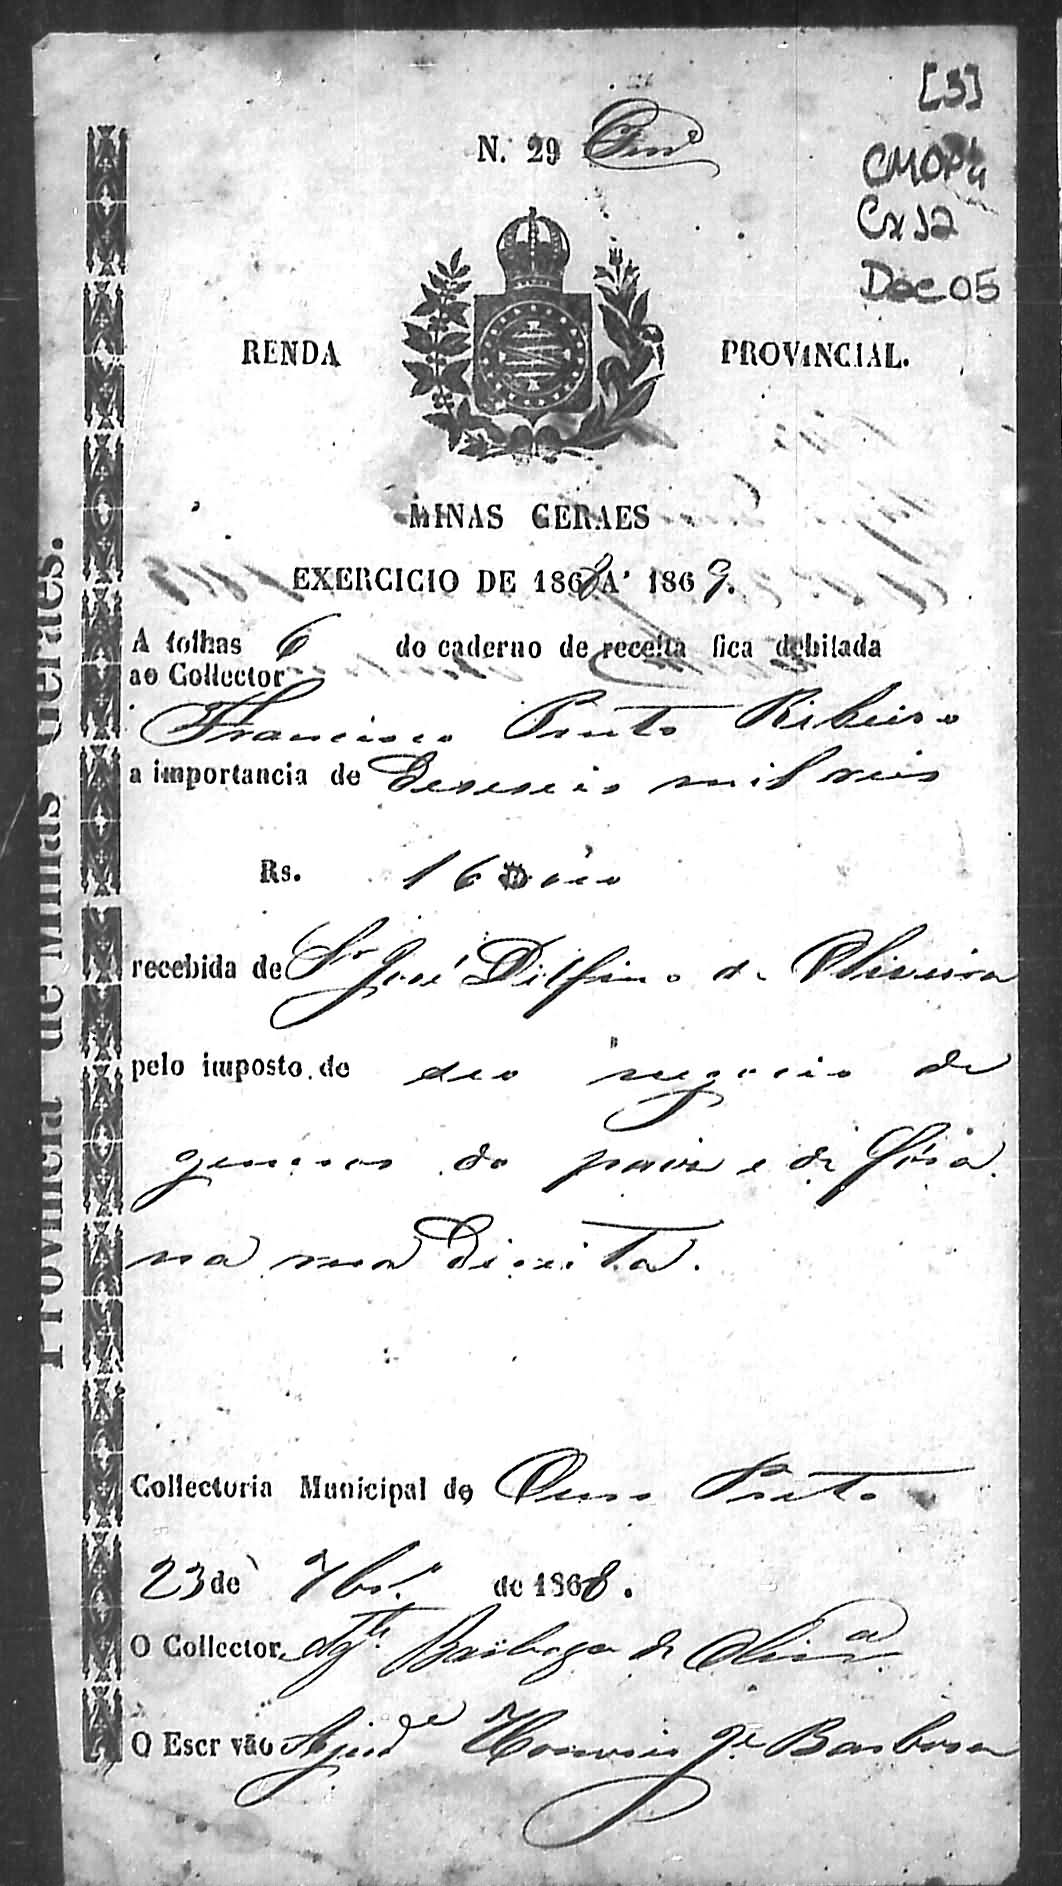 [3]
CMOP
Cx 12
Doc 05
N. 29
RENDA PROVINCIAL.
MINAS GERAES
EXERCICIO DE 1868 A' 1869.
A folhas 6 do caderno de receita fica debitada
ao Collector
Francisco Preto Ribeiro
a importancia de Deseseis mil reis
Rs. 16$000
recebida de Sr José Dilfino de Oliveira
pelo imposto de seo negocio de
generos do paiz e de fóra
na rua Direita.
Collectoria Municipal de Ouro Preto
23 de 7br.º de 1868.
O Collector Barboza de Olivrª
O Escrivão Ajudᵉ Honorio Jᵉ Barbosa
Provincia de Minas Geraes.